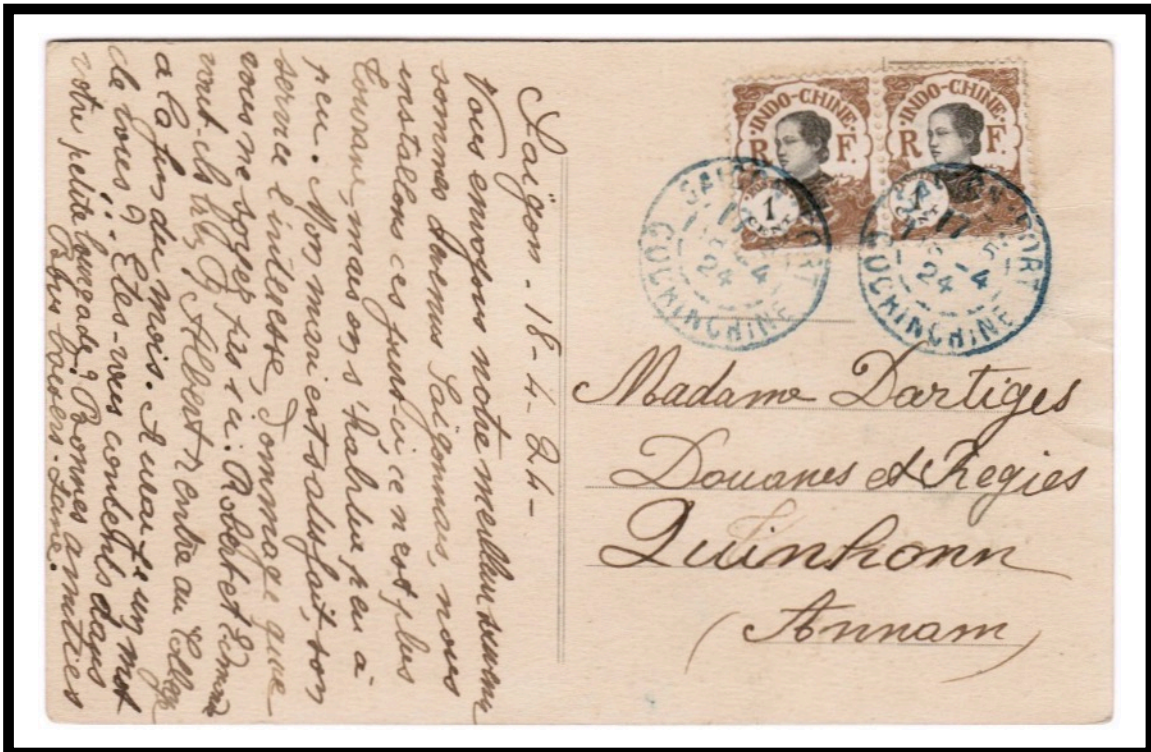 INDO-CHINE
R F.
1
INDO-CHINE
R F.
1
SAIGON-PORT
COCHINCHINE
24 4
SAIGON-PORT
17
24 4
COCHINCHINE
Madame Dartiges
Douanes et Regies
Quinhonn
(Annam)
Saïgon - 18-4-24-
Vous envoyons notre meilleur souvenir
sommes devenus Saïgonnais, nous
installons ces jours-ci ce n'est plus
Tourane, mais on s'habitue peu à
peu. Mon mari est satisfait, son
service l'intéresse, Dommage que
vous ne soyez pas ici. Robert et
vont-ils Albert rentre au College
a la fin du mois. Aurai-je un mot
de vous? Etes-vous contents dans
votre petite bourgade? Bonnes amities
Gros baisers.